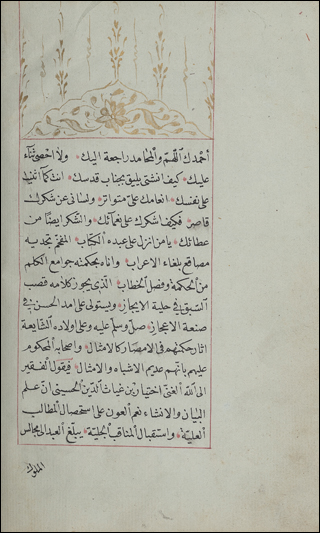 أحمدك اللهم والمحامد راجعة اليك ولا احصى ثناء
عليك كيف انثنى يليق بجناب قدسك انت كما اثنيت
على نفسك انعامك علىّ متواتر ولسانى عن شكرك
قاصر فكيف اشكرك على نعمائك والشكر ايضا من
عطائك يا من انزل على عبده الكتاب المفخم تحدّ به
مصاقع بلغاء الاعراب واتاه بحكمته جوامع الكلم
من الحكمة وفصل الخطاب الذى يحوز كلامه قصب
السبق فى حلبة الايجاز ويستولى على امد الحسن فى
صنعة الاعجاز صل وسلم عليه وعلى اولاده الشايعة
اثار حكمهم فى الامصار كالامثال واصحابه المحكوم
عليهم بانهم عديم الاشباه والامثال فيقول الفقير
الى الله الغنى اختيار بن غياث الدين الحسينى ان علم
البيان والانشاء نعم العون على استحصال المطالب
العلية واستقبال المناقب الجلية يبلغ العبد الى مجالس
الملوك